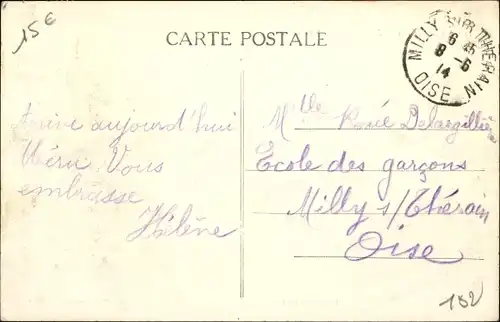 15€
CARTE POSTALE
MILLY SUR THERAIN
6 45
8 -6
14
OISE
Arrive aujourd'hui
Méru. Vous
embrasse
Hélène
Mlle Renée Delargillière
Ecole des garçons
Milly s/Thérain
Oise
152